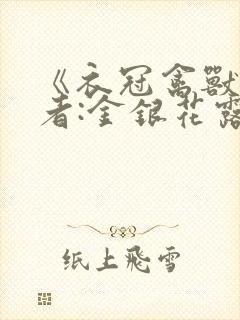 《衣冠禽獸
者:金银花露
纸上飛雪